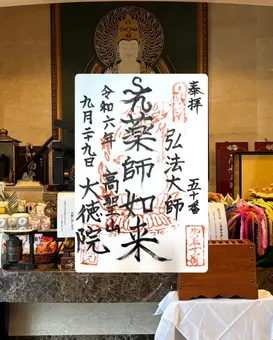 奉拝
五十番
弘法大師
薬師如来
令和六年
九月二十九日
高埜山
大徳院